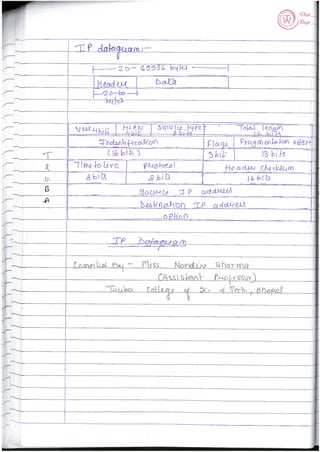 IP datagram:-
20 - 65536 bytes
Header Data
20-60
bytes
Ver 4bits HLEN 4bits Service type 8 bits Total length 16 bits
Indentification (16 bits) Flags 3 bits Fragmentation offset 13 bits
Time to live 8 bits protocol 8 bits Header Checksum 16 bits
Source IP address
Destination IP address
option
T
R
U
B
A
IP Datagram
Compiled By - Miss. Nandini Sharma
(Assistant Professor)
Truba College of Sc. & Tech., Bhopal